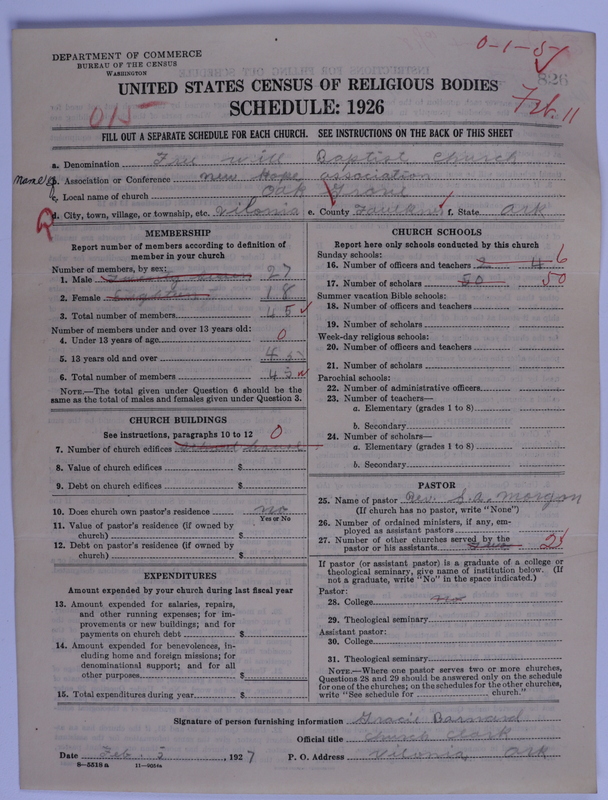 DEPARTMENT OF COMMERCE
BUREAU OF THE CENSUS
WASHINGTON
0-1-5
826
UNITED STATES CENSUS OF RELIGIOUS BODIES
SCHEDULE: 1926
015
Feb. 11
FILL OUT A SEPARATE SCHEDULE FOR EACH CHURCH. SEE INSTRUCTIONS ON THE BACK OF THIS SHEET
a. Denomination Free will Baptist Church
Name of b. Association or Conference New Hope association
c. Local name of church Oak Grove
d. City, town, village, or township, etc. Vilonia e. County Faulkner f. State Ark
MEMBERSHIP
Report number of members according to definition of member in your church
Number of members, by sex:
1. Male 27
2. Female Eighteen 18
3. Total number of members 45
Number of members under and over 13 years old:
4. Under 13 years of age 0
5. 13 years old and over 45
6. Total number of members 45
NOTE.—The total given under Question 6 should be the same as the total of males and females given under Question 3.
CHURCH BUILDINGS
See instructions, paragraphs 10 to 12 0
7. Number of church edifices School house
8. Value of church edifices $
9. Debt on church edifices $
10. Does church own pastor's residence no
Yes or No
11. Value of pastor's residence (if owned by church) $
12. Debt on pastor's residence (if owned by church) $
EXPENDITURES
Amount expended by your church during last fiscal year
13. Amount expended for salaries, repairs, and other running expenses; for improvements or new buildings; and for payments on church debt $
14. Amount expended for benevolences, including home and foreign missions; for denominational support; and for all other purposes $
15. Total expenditures during year $
CHURCH SCHOOLS
Report here only schools conducted by this church
Sunday schools:
16. Number of officers and teachers 2 4 6
17. Number of scholars 50 50
Summer vacation Bible schools:
18. Number of officers and teachers
19. Number of scholars
Week-day religious schools:
20. Number of officers and teachers
21. Number of scholars
Parochial schools:
22. Number of administrative officers
23. Number of teachers—
a. Elementary (grades 1 to 8)
b. Secondary
24. Number of scholars—
a. Elementary (grades 1 to 8)
b. Secondary
PASTOR
25. Name of pastor Rev. S.A. Morgan
(If church has no pastor, write "None")
26. Number of ordained ministers, if any, employed as assistant pastors
27. Number of other churches served by the pastor or his assistants 2
If pastor (or assistant pastor) is a graduate of a college or theological seminary, give name of institution below. (If not a graduate, write "No" in the space indicated.)
Pastor:
28. College no
29. Theological seminary
Assistant pastor:
30. College
31. Theological seminary
NOTE.—Where one pastor serves two or more churches, Questions 28 and 29 should be answered only on the schedule for one of the churches; on the schedules for the other churches, write "See schedule for church."
Signature of person furnishing information Gracie Barnard
Official title Church Clark
Date Feb. 5, 1927 P. O. Address Vilonia, Ark
8-5518a 11-9054a